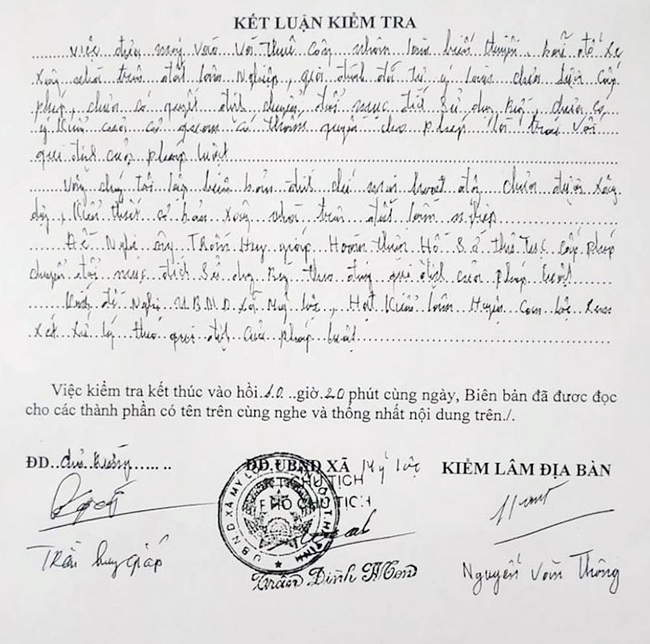 KẾT LUẬN KIỂM TRA
Việc đưa máy vào và thuê công nhân làm
xây nhà trên đất lâm nghiệp, gia đình đã tự ý làm chưa được cấp
phép, chưa có quyết định chuyển đổi mục đích sử dụng chưa có
ý kiến của cơ quan có thẩm quyền cho phép là trái với
qui định của pháp luật
Vậy chúng tôi lập biên bản đình chỉ mọi hoạt động chưa được xây
dựng, xây nhà trên đất lâm nghiệp
Đề nghị ông Trần Huy Giáp Hoàn thiện Hồ Sơ thủ tục cấp phép
chuyển đổi mục đích sử dụng theo đúng qui định của pháp luật
Kính đề nghị UBND xã Mỹ Lộc, Hạt Kiểm lâm Huyện Can Lộc xem
xét xử lý theo qui định của pháp luật
Việc kiểm tra kết thúc vào hồi 10 giờ 20 phút cùng ngày, Biên bản đã được đọc
cho các thành phần có tên trên cùng nghe và thống nhất nội dung trên./.
ĐD. chủ rừng
ĐD UBND XÃ Mỹ Lộc
KIỂM LÂM ĐỊA BÀN
CHỦ TỊCH
PHÓ CHỦ TỊCH
Trần Huy Giáp
Trần Đình
Nguyễn Văn Thông